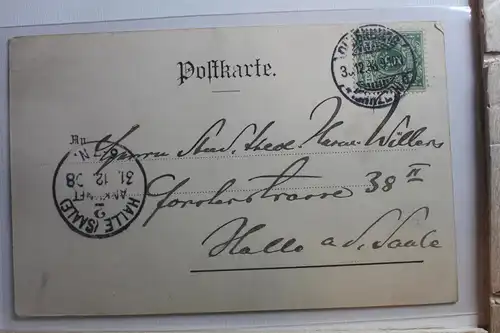 Postkarte.
OLDENBURG
An
Herrn Stud. theol. Herm. Willers
Forsterstrasse 38 II
Halle a. d. Saale
HALLE (SAALE)
ANKUNFT
31 12 98
2-
N